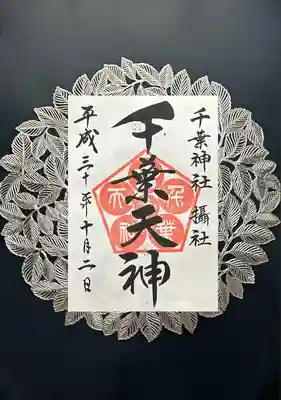 千葉神社 攝社
千葉天神
平成三十年十月二日